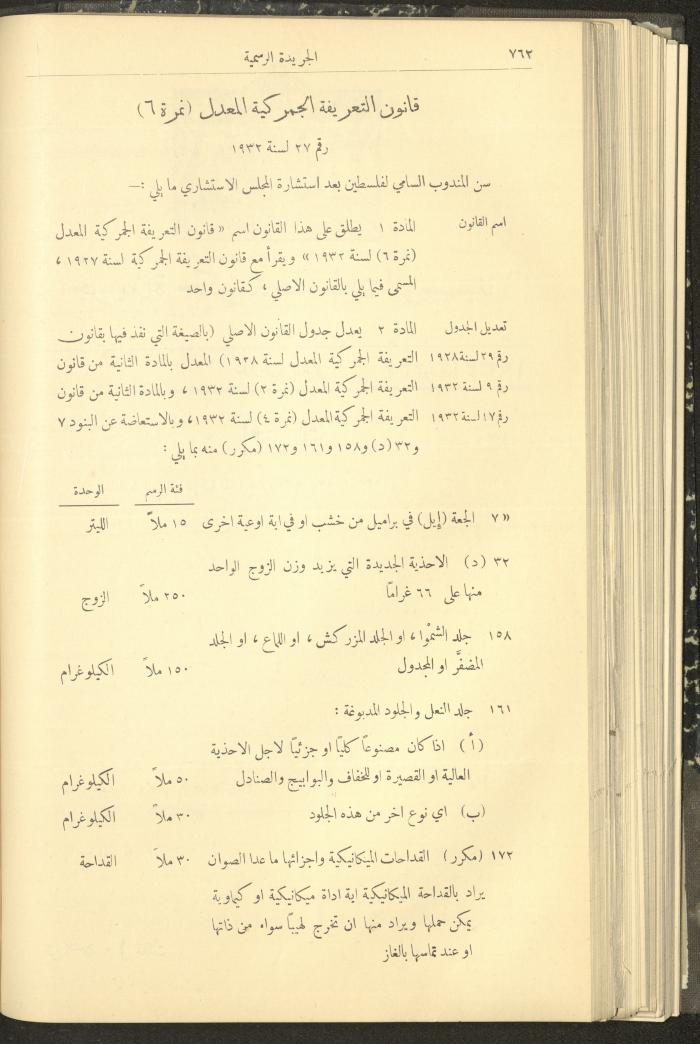 ٧٦٢ الجريدة الرسمية
قانون التعريفة الجمركية المعدل (نمرة ٦)
رقم ٢٧ لسنة ١٩٣٢
سن المندوب السامي لفلسطين بعد استشارة المجلس الاستشاري ما يلي :—
اسم القانون المادة ١ يطلق على هذا القانون اسم « قانون التعريفة الجمركية المعدل
(نمرة ٦) لسنة ١٩٣٢ » ويقرأ مع قانون التعريفة الجمركية لسنة ١٩٢٧ ،
المسمى فيما يلي بالقانون الاصلي ، كقانون واحد
تعديل الجدول المادة ٢ يعدل جدول القانون الاصلي (بالصيغة التي نفذ فيها بقانون
رقم ٢٩ لسنة ١٩٢٨ التعريفة الجمركية المعدل لسنة ١٩٢٨) المعدل بالمادة الثانية من قانون
رقم ٩ لسنة ١٩٣٢ التعريفة الجمركية المعدل (نمرة ٢) لسنة ١٩٣٢ ، وبالمادة الثانية من قانون
رقم ١٧ لسنة ١٩٣٢ التعريفة الجمركية المعدل (نمرة ٤) لسنة ١٩٣٢ ، وبالاستعاضة عن البنود ٧
و ٣٢ (د) و ١٥٨ و ١٦١ و ١٧٢ (مكرر) منه بما يلي :
فئة الرسم الوحدة
« ٧ الجعة (إيل) في براميل من خشب او في اية اوعية اخرى ١٥ ملاً الليتر
٣٢ (د) الاحذية الجديدة التي يزيد وزن الزوج الواحد
منها على ٦٦ غرامًا ٢٥٠ ملاً الزوج
١٥٨ جلد الشمْوا ، او الجلد المزركش ، او اللماع ، او الجلد
المضفَّر او المجدول ١٥٠ ملاً الكيلوغرام
١٦١ جلد النعل والجلود المدبوغة :
(أ) اذا كان مصنوعًا كليًا او جزئيًا لاجل الاحذية
العالية او القصيرة او للخفاف والبوابيج والصنادل ٥٠ ملاً الكيلوغرام
(ب) اي نوع اخر من هذه الجلود ٣٠ ملاً الكيلوغرام
١٧٢ (مكرر) القداحات الميكانيكية واجزائها ما عدا الصوان ٣٠ ملاً القداحة
يراد بالقداحة الميكانيكية اية اداة ميكانيكية او كيماوية
يمكن حملها ويراد منها ان تخرج لهيبًا سواء من ذاتها
او عند تماسها بالغاز